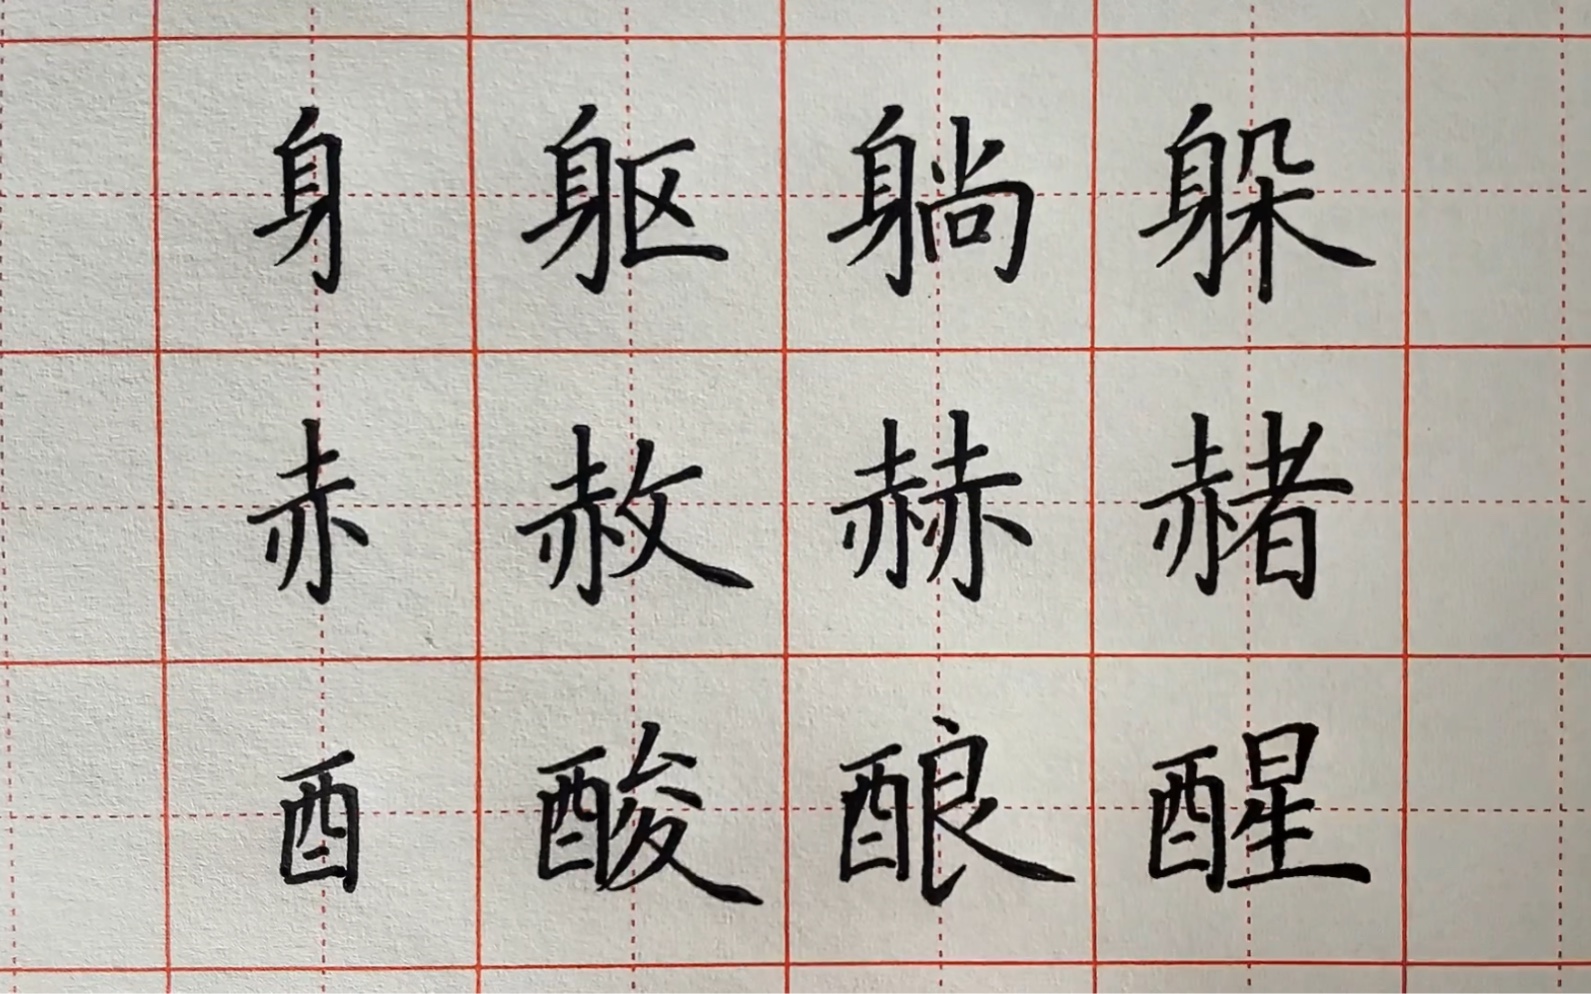 身躯躺躲
赤赦赫赭
酉酸酿醒